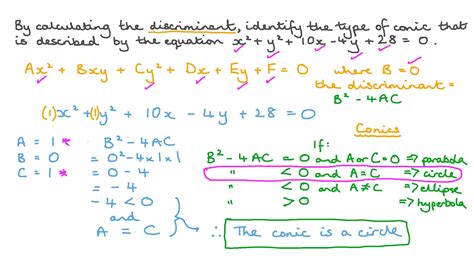 By calculating the discriminant, identify the type of conic that
is described by the equation x² + y² + 10x - 4y + 28 = 0.
Ax² + Bxy + Cy² + Dx + Ey + F = 0 where B = 0
the discriminant =
B² - 4AC
(1)x² + (1)y² + 10x - 4y + 28 = 0
A = 1 *
B = 0
C = 1 *
B² - 4AC
= 0² - 4×1×1
= 0 - 4
= -4
-4 < 0
and
A = C
Conics
If:
B² - 4AC = 0 and A or C = 0 => parabola
" < 0 and A = C => circle
" < 0 and A ≠ C => ellipse
" > 0 => hyperbola
∴ The conic is a circle